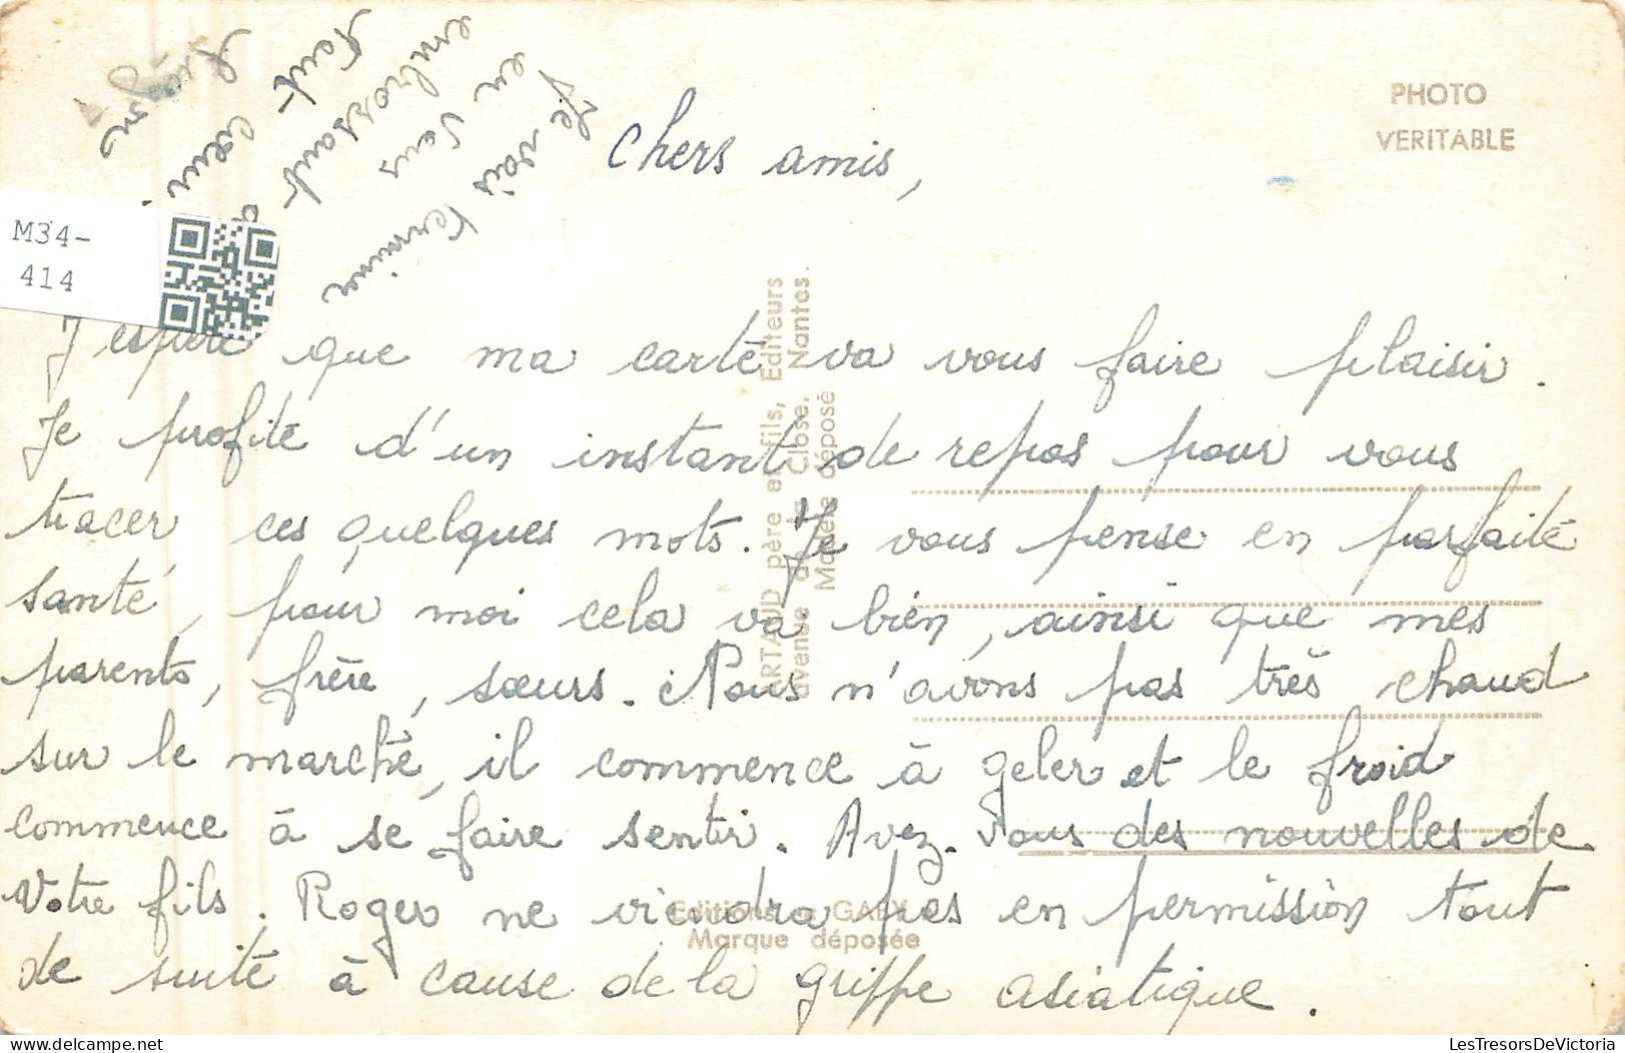 Chers amis,
J'espère que ma carte va vous faire plaisir.
Je profite d'un instant de repos pour vous
tracer ces quelques mots. Je vous pense en parfaite
santé, pour moi cela va bien, ainsi que mes
parents, frère, sœurs. Nous n'avons pas très chaud
sur le marché, il commence à geler et le froid
commence à se faire sentir. Avez-vous des nouvelles de
votre fils. Roger ne viendra pas en permission tout
de suite à cause de la griffe asiatique.
Je vais terminer
en vous
embrassant
tout
cœur
PHOTO
VERITABLE
ARTAUD père et fils, Editeurs
avenue de la Close, Nantes.
Modèle déposé
Editions GABY
Marque déposée
M34-
414
delcampe.net
LesTresorsDeVictoria